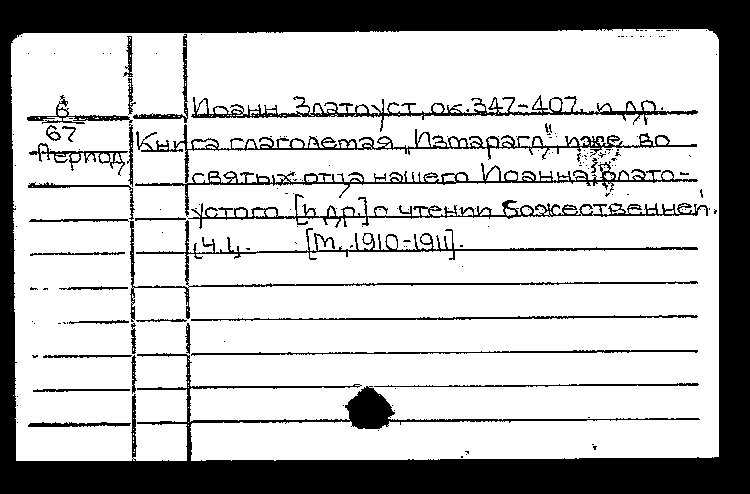 6
67
Период.
Иоанн Златоуст, ок. 347-407. и др.
Книга глаголемая „Измарагд", иже во
святых отца нашего Иоанна Злато-
устого [и др.] о чтении божественней.
Ч. I. [М., 1910-1911].